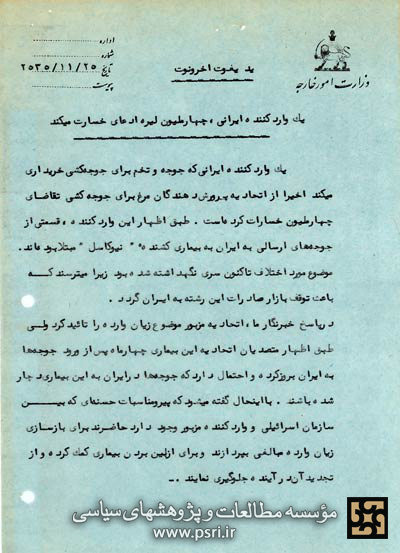 اداره
شماره
تاریخ ۲۵۳۵/۱۱/۲۵
پیوست
وزارت امور خارجه
ید یعوت اخرونوت
یك وارد كننده ایرانی، چهارمليون لیره ادعای خسارت میكند
یك وارد كننده ایرانی كه جوجه و تخم برای جوجه‌كشی خریداری
میكند اخیرا از اتحادیه پرورش دهندگان مرغ برای جوجه كشی تقاضای
چهارمليون خسارات كرده‌است. طبق اظهار این وارد كننده، قسمتی از
جوجه‌های ارسالی به ایران به بیماری كشنده " نیوكاسل " مبتلا بوده‌اند.
موضوع مورد اختلاف تاكنون سری نگهداشته شده بود زیرا میترسند كه
باعث توقف بازار صادرات این رشته به ایران گردد.
در پاسخ خبرنگار ما، اتحادیه مزبور موضوع زیان وارده را تائید كرد ولی
طبق اظهار متصدیان اتحادیه این بیماری چهارماه پس از ورود جوجه‌ها
به ایران بروز كرده و احتمال دارد كه جوجه‌ها در ایران به این بیماری دچار
شده باشند. با اینحال گفته میشود كه پیرو مناسبات حسنه‌ای كه بیـــن
سازمان اسرائیلی و وارد كننده مزبور وجود دارد حاضرند برای بازسازی
زیان وارده مبالغی بپردازند و برای ازبین بردن بیماری كمك كرده و از
تجدید آن در آینده جلوگیری نمایند .ـ
مؤسسه مطالعات و پژوهشهای سیاسی
www.psri.ir